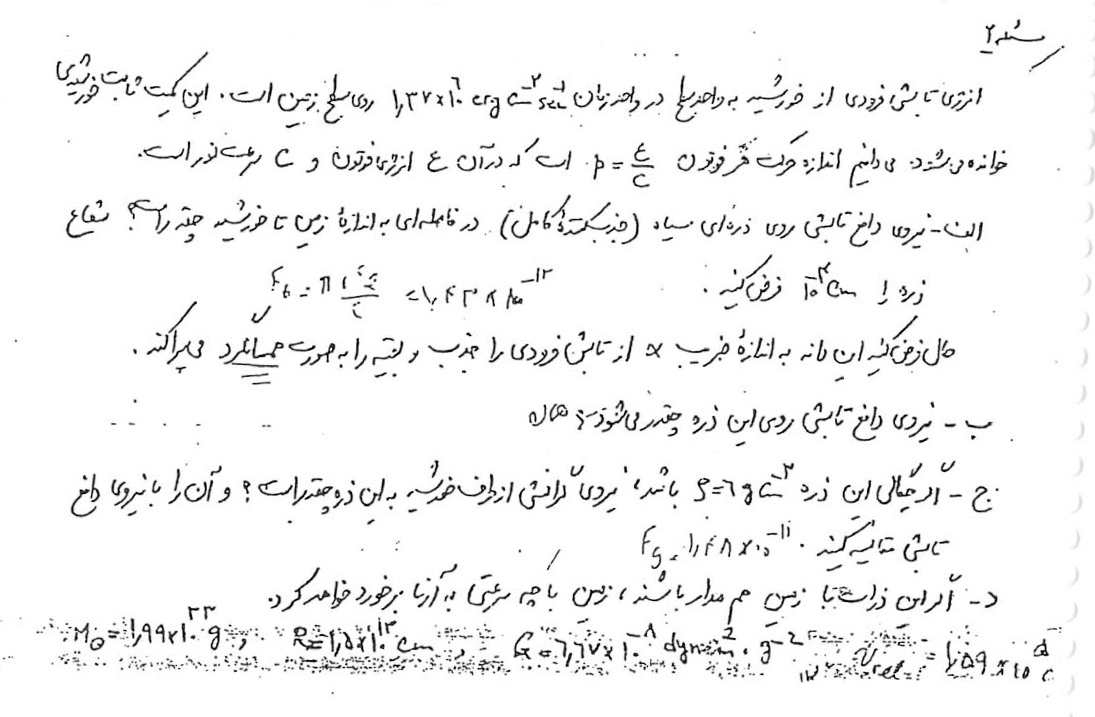 مسئله ۲
انرژی تابشی فرودی از خورشید به واحد سطح در واحد زمان ۱٫۳۷×۱۰^۶ erg cm^-۲ sec^-۱ روی سطح زمین است. این کمیت ثابت خورشیدی
خوانده می‌شود. می‌دانیم اندازه حرکت هر فوتون p = ε/c است که در آن ε انرژی فوتون و c سرعت نور است.
الف- نیروی دافع تابشی روی ذره‌ای سیاه (جذب‌کنندهٔ کامل) در فاصله‌ای به اندازهٔ زمین تا خورشید چقدر است؟ شعاع
ذره را ۱۰^-۳ cm فرض کنید.
حال فرض کنید این دانه به اندازهٔ ضریب α از تابش فرودی را جذب و بقیه را به صورت همسانگرد می‌پراکند.
ب- نیروی دافع تابشی روی این ذره چقدر می‌شود؟
ج- اگر چگالی این ذره ρ=6 g cm^-۳ باشد، نیروی گرانش از طرف خورشید به این ذره چقدر است؟ و آن را با نیروی دافع
تابشی مقایسه کنید. F_g = ۱٫۴۸×۱۰^-۱۱
د- اگر این ذرات با زمین هم مدار باشند، زمین با چه سرعتی به آنها برخورد خواهد کرد.
M_⊙ = ۱٫۹۹×۱۰^۳۳ g, R = ۱٫۵×۱۰^۱۳ cm, G = ۶٫۶۷×۱۰^-۸ dyn cm^2 . g^-2 V_rel = ۱٫۵۹×10